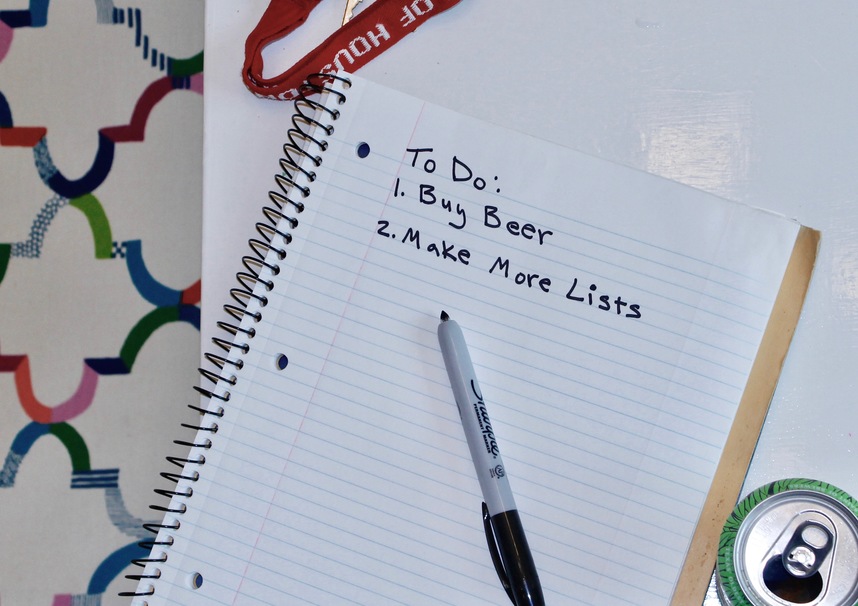 OF HOUSTON
To Do:
1. Buy Beer
2. Make More Lists
Sharpie